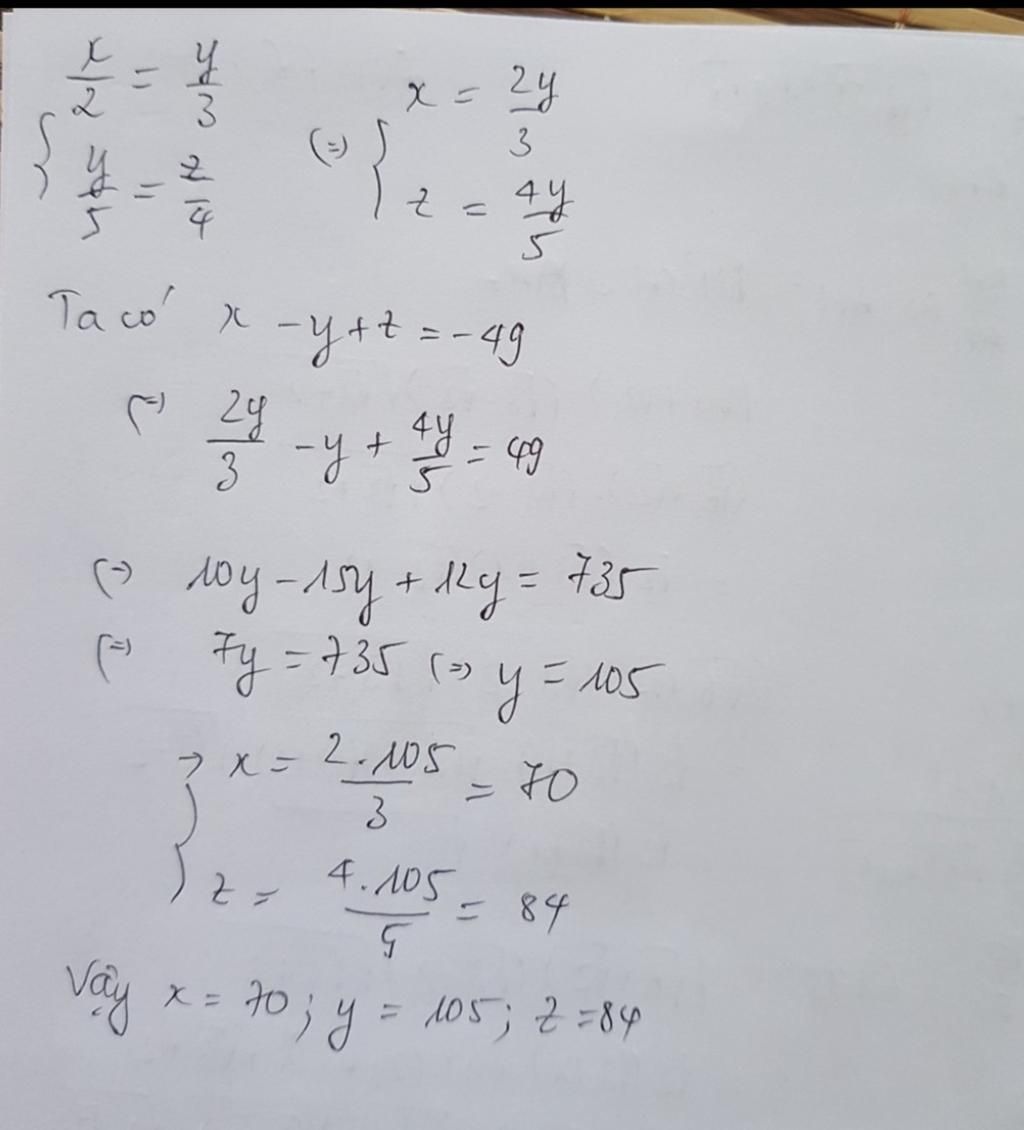 x/2 = y/3
{ y/5 = z/4
(=) { x = 2y/3
z = 4y/5
Ta có x - y + z = - 49
(=) 2y/3 - y + 4y/5 = 49
(=) 10y - 15y + 12y = 735
(=) 7y = 735 (=) y = 105
→ { x = 2.105/3 = 70
z = 4.105/5 = 84
Vậy x = 70; y = 105; z = 84